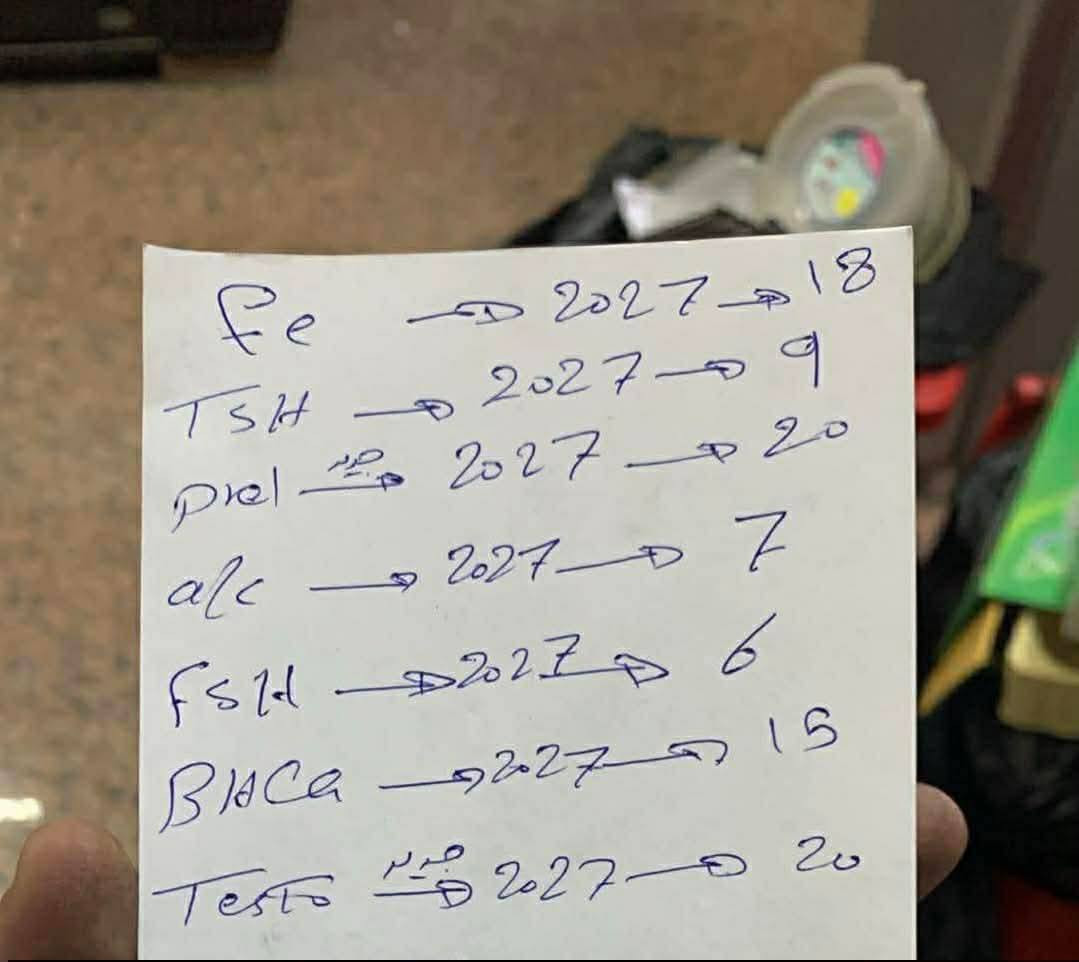 fe → 2027 → 18
TSH → 2027 → 9
prol → 2027 → 20
a/c → 2027 → 7
FSH → 2027 → 6
BHCG → 2027 → 15
Testo → 2027 → 20